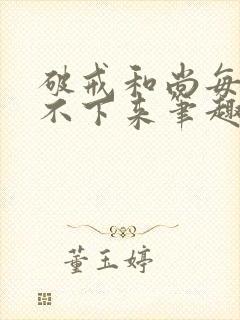 破戒和尚每
不下来笔趣
董玉婷